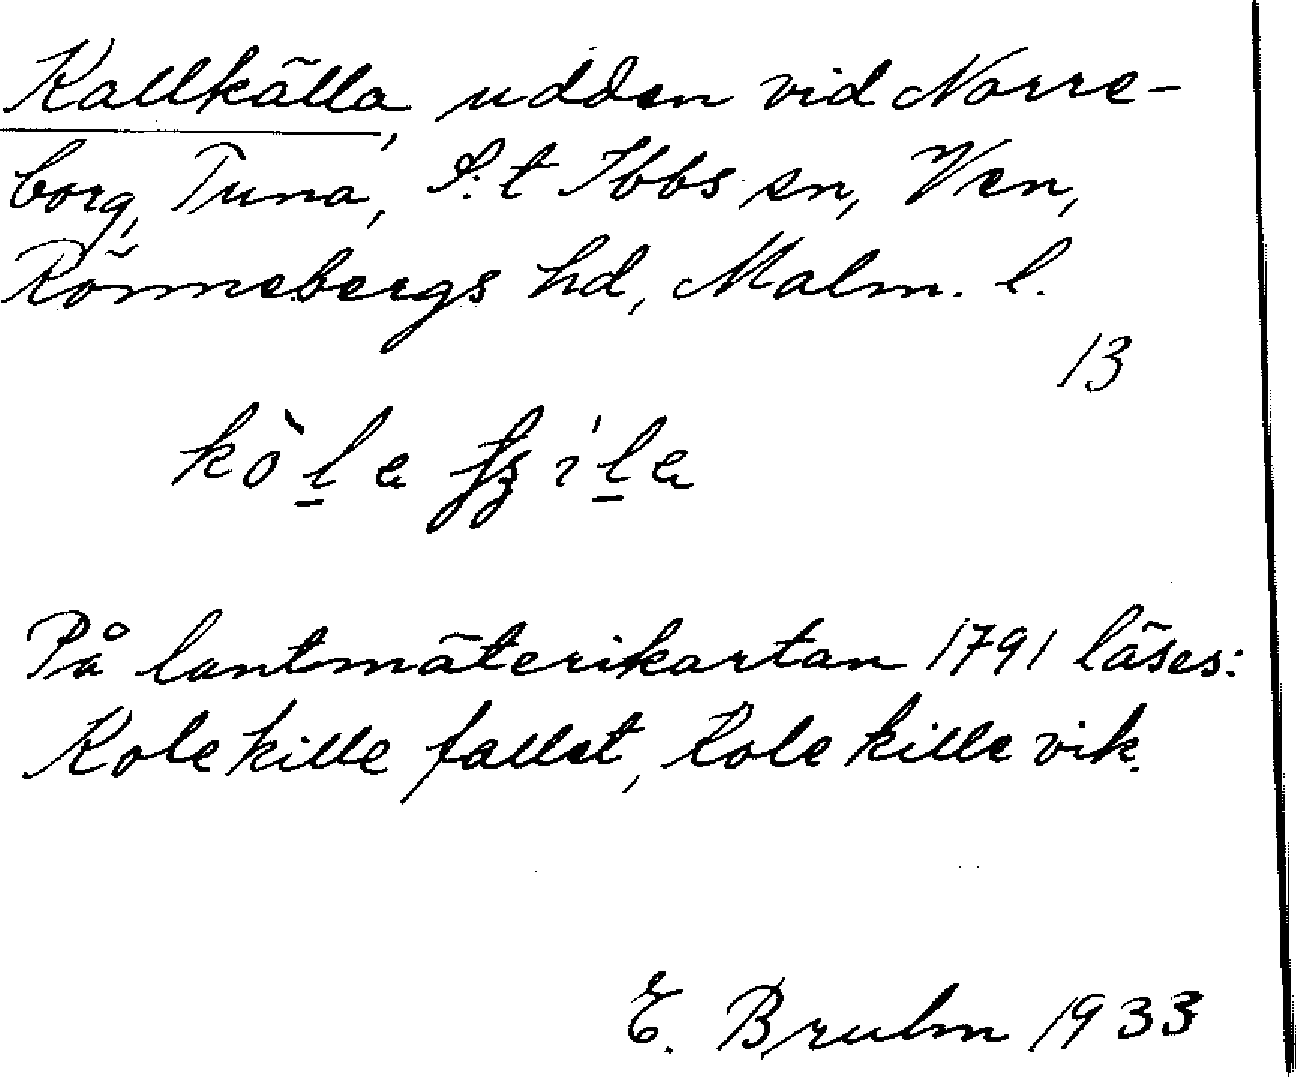 Kallkälla, udden vid Norre-
borg, Tuna, S:t Ibbs sn, Ven,
Rönnebergs hd, Malm. l.
13
På lantmäterikartan 1791 läses:
Kolekille fallet, Kole kille vik.
E. Bruhn 1933